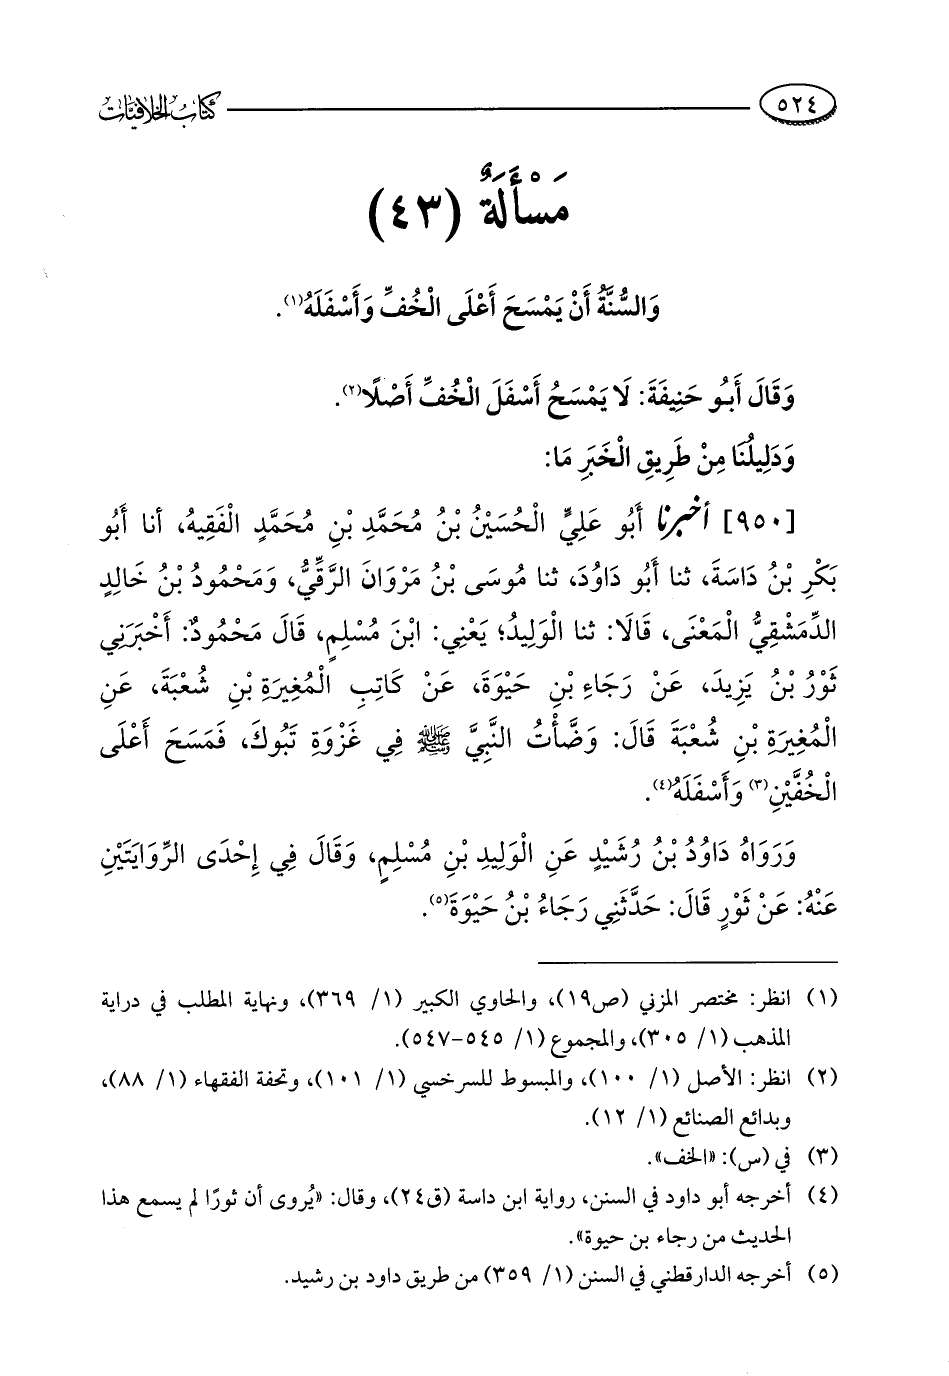 ٥٢٤
كتاب الخلافيات
مَسْأَلَةٌ (٤٣)
وَالسُّنَّةُ أَنْ يَمْسَحَ أَعْلَى الْخُفِّ وَأَسْفَلَهُ(١).
وَقَالَ أَبُو حَنِيفَةَ: لَا يَمْسَحُ أَسْفَلَ الْخُفِّ أَصْلًا(٢).
وَدَلِيلُنَا مِنْ طَرِيقِ الْخَبَرِ مَا:
[٩٥٠] أخبرنا أَبُو عَلِيٍّ الْحُسَيْنُ بْنُ مُحَمَّدِ بْنِ مُحَمَّدٍ الْفَقِيهُ، أنا أَبُو
بَكْرِ بْنُ دَاسَةَ، ثنا أَبُو دَاوُدَ، ثنا مُوسَى بْنُ مَرْوَانَ الرَّقِّيُّ، وَمَحْمُودُ بْنُ خَالِدٍ
الدِّمَشْقِيُّ الْمَعْنَى، قَالَا: ثنا الْوَلِيدُ؛ يَعْنِي: ابْنَ مُسْلِمٍ، قَالَ مَحْمُودٌ: أَخْبَرَنِي
ثَوْرُ بْنُ يَزِيدَ، عَنْ رَجَاءِ بْنِ حَيْوَةَ، عَنْ كَاتِبِ الْمُغِيرَةِ بْنِ شُعْبَةَ، عَنِ
الْمُغِيرَةِ بْنِ شُعْبَةَ قَالَ: وَضَّأْتُ النَّبِيَّ ﷺ فِي غَزْوَةِ تَبُوكَ، فَمَسَحَ أَعْلَى
الْخُفَّيْنِ(٣) وَأَسْفَلَهُ(٤).
وَرَوَاهُ دَاوُدُ بْنُ رُشَيْدٍ عَنِ الْوَلِيدِ بْنِ مُسْلِمٍ، وَقَالَ فِي إِحْدَى الرِّوَايَتَيْنِ
عَنْهُ: عَنْ ثَوْرٍ قَالَ: حَدَّثَنِي رَجَاءُ بْنُ حَيْوَةَ(٥).
(١) انظر: مختصر المزني (ص١٩)، والحاوي الكبير (١/ ٣٦٩)، ونهاية المطلب في دراية
المذهب (١/ ٣٠٥)، والمجموع (١/ ٥٤٥-٥٤٧).
(٢) انظر: الأصل (١/ ١٠٠)، والمبسوط للسرخسي (١/ ١٠١)، وتحفة الفقهاء (١/ ٨٨)،
وبدائع الصنائع (١/ ١٢).
(٣) في (س): «الخف».
(٤) أخرجه أبو داود في السنن، رواية ابن داسة (ق٢٤)، وقال: «يُروى أن ثورًا لم يسمع هذا
الحديث من رجاء بن حيوة».
(٥) أخرجه الدارقطني في السنن (١/ ٣٥٩) من طريق داود بن رشيد.